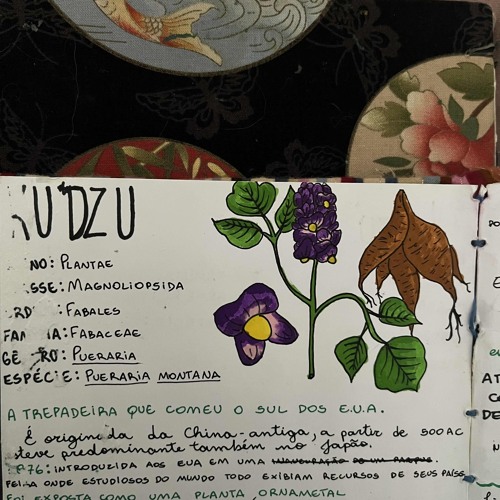 KUDZU
NO: PLANTAE
SSE: MAGNOLIOPSIDA
RD : FABALES
FAM IA: FABACEAE
GÊ RO: PUERARIA
ESPÉCIE: PUERARIA MONTANA
A TREPADEIRA QUE COMEU O SUL DOS E.U.A.
É origin da da China-antiga, a partir de 500AC
steve predominante também no Japão.
1876: INTRODUZIDA AOS EUA EM UMA
FEIRA ONDE ESTUDIOSOS DO MUNDO TODO EXIBIAM RECURSOS DE SEUS PAÍSES
FOI EXPOSTA COMO UMA PLANTA ORNAMETAL